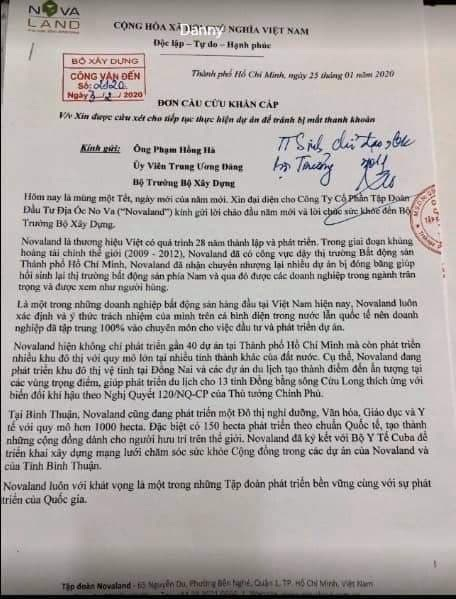 NOVA
LAND
CỘNG HÒA XÃ HỘI CHỦ NGHĨA VIỆT NAM
Danny
Độc lập - Tự do - Hạnh phúc
Thành phố Hồ Chí Minh, ngày 25 tháng 01 năm 2020
BỘ XÂY DỰNG
CÔNG VĂN ĐẾN
Số:
Ngày 3/2/2020
ĐƠN CẦU CỨU KHẨN CẤP
V/v Xin được cứu xét cho tiếp tục thực hiện dự án để tránh bị mất thanh khoản
Kính gửi: Ông Phạm Hồng Hà
Ủy Viên Trung Ương Đảng
Bộ Trưởng Bộ Xây Dựng
Hôm nay là mùng một Tết, ngày mới của năm mới. Xin đại diện cho Công Ty Cổ Phần Tập Đoàn
Đầu Tư Địa Ốc No Va ("Novaland") kính gửi lời chào đầu năm mới và lời chúc sức khỏe đến Bộ
Trưởng Bộ Xây Dựng.
Novaland là thương hiệu Việt có quá trình 28 năm thành lập và phát triển. Trong giai đoạn khủng
hoảng tài chính thế giới (2009 - 2012), Novaland đã có công vực dậy thị trường Bất động sản
Thành phố Hồ Chí Minh, Novaland đã nhận chuyển nhượng lại nhiều dự án bị đóng băng giúp
hồi sinh lại thị trường bất động sản phía Nam và qua đó được các doanh nghiệp trong ngành trân
trọng và được xem như người hùng.
Là một trong những doanh nghiệp bất động sản hàng đầu tại Việt Nam hiện nay, Novaland luôn
xác định và ý thức trách nhiệm của mình trên cả bình diện trong nước lẫn quốc tế nên doanh
nghiệp đã tập trung 100% vào chuyên môn cho việc đầu tư và phát triển dự án.
Novaland hiện không chỉ phát triển gần 40 dự án tại Thành phố Hồ Chí Minh mà còn phát triển
nhiều khu đô thị với quy mô lớn tại nhiều tỉnh thành khác của đất nước. Cụ thể, Novaland đang
phát triển khu đô thị vệ tinh tại Đồng Nai và các dự án du lịch tạo thành điểm đến ấn tượng tại
các vùng trọng điểm, giúp phát triển du lịch cho 13 tỉnh Đồng bằng sông Cửu Long thích ứng với
biến đổi khí hậu theo Nghị Quyết 120/NQ-CP của Thủ tướng Chính Phủ.
Tại Bình Thuận, Novaland cũng đang phát triển một Đô thị nghỉ dưỡng, Văn hóa, Giáo dục và Y
tế với quy mô hơn 1000 hecta. Đặc biệt có 150 hecta phát triển theo chuẩn Quốc tế, tạo thành
những cộng đồng dành cho người hưu trí trên thế giới. Novaland đã ký kết với Bộ Y Tế Cuba để
triển khai xây dựng mạng lưới chăm sóc sức khỏe Cộng đồng trong các dự án của Novaland và
của Tỉnh Bình Thuận.
Novaland luôn với khát vọng là một trong những Tập đoàn phát triển bền vững cùng với sự phát
triển của Quốc gia.
Tập đoàn Novaland - 65 Nguyễn Du, Phường Bến Nghé, Quận 1, TP. Hồ Chí Minh, Việt Nam